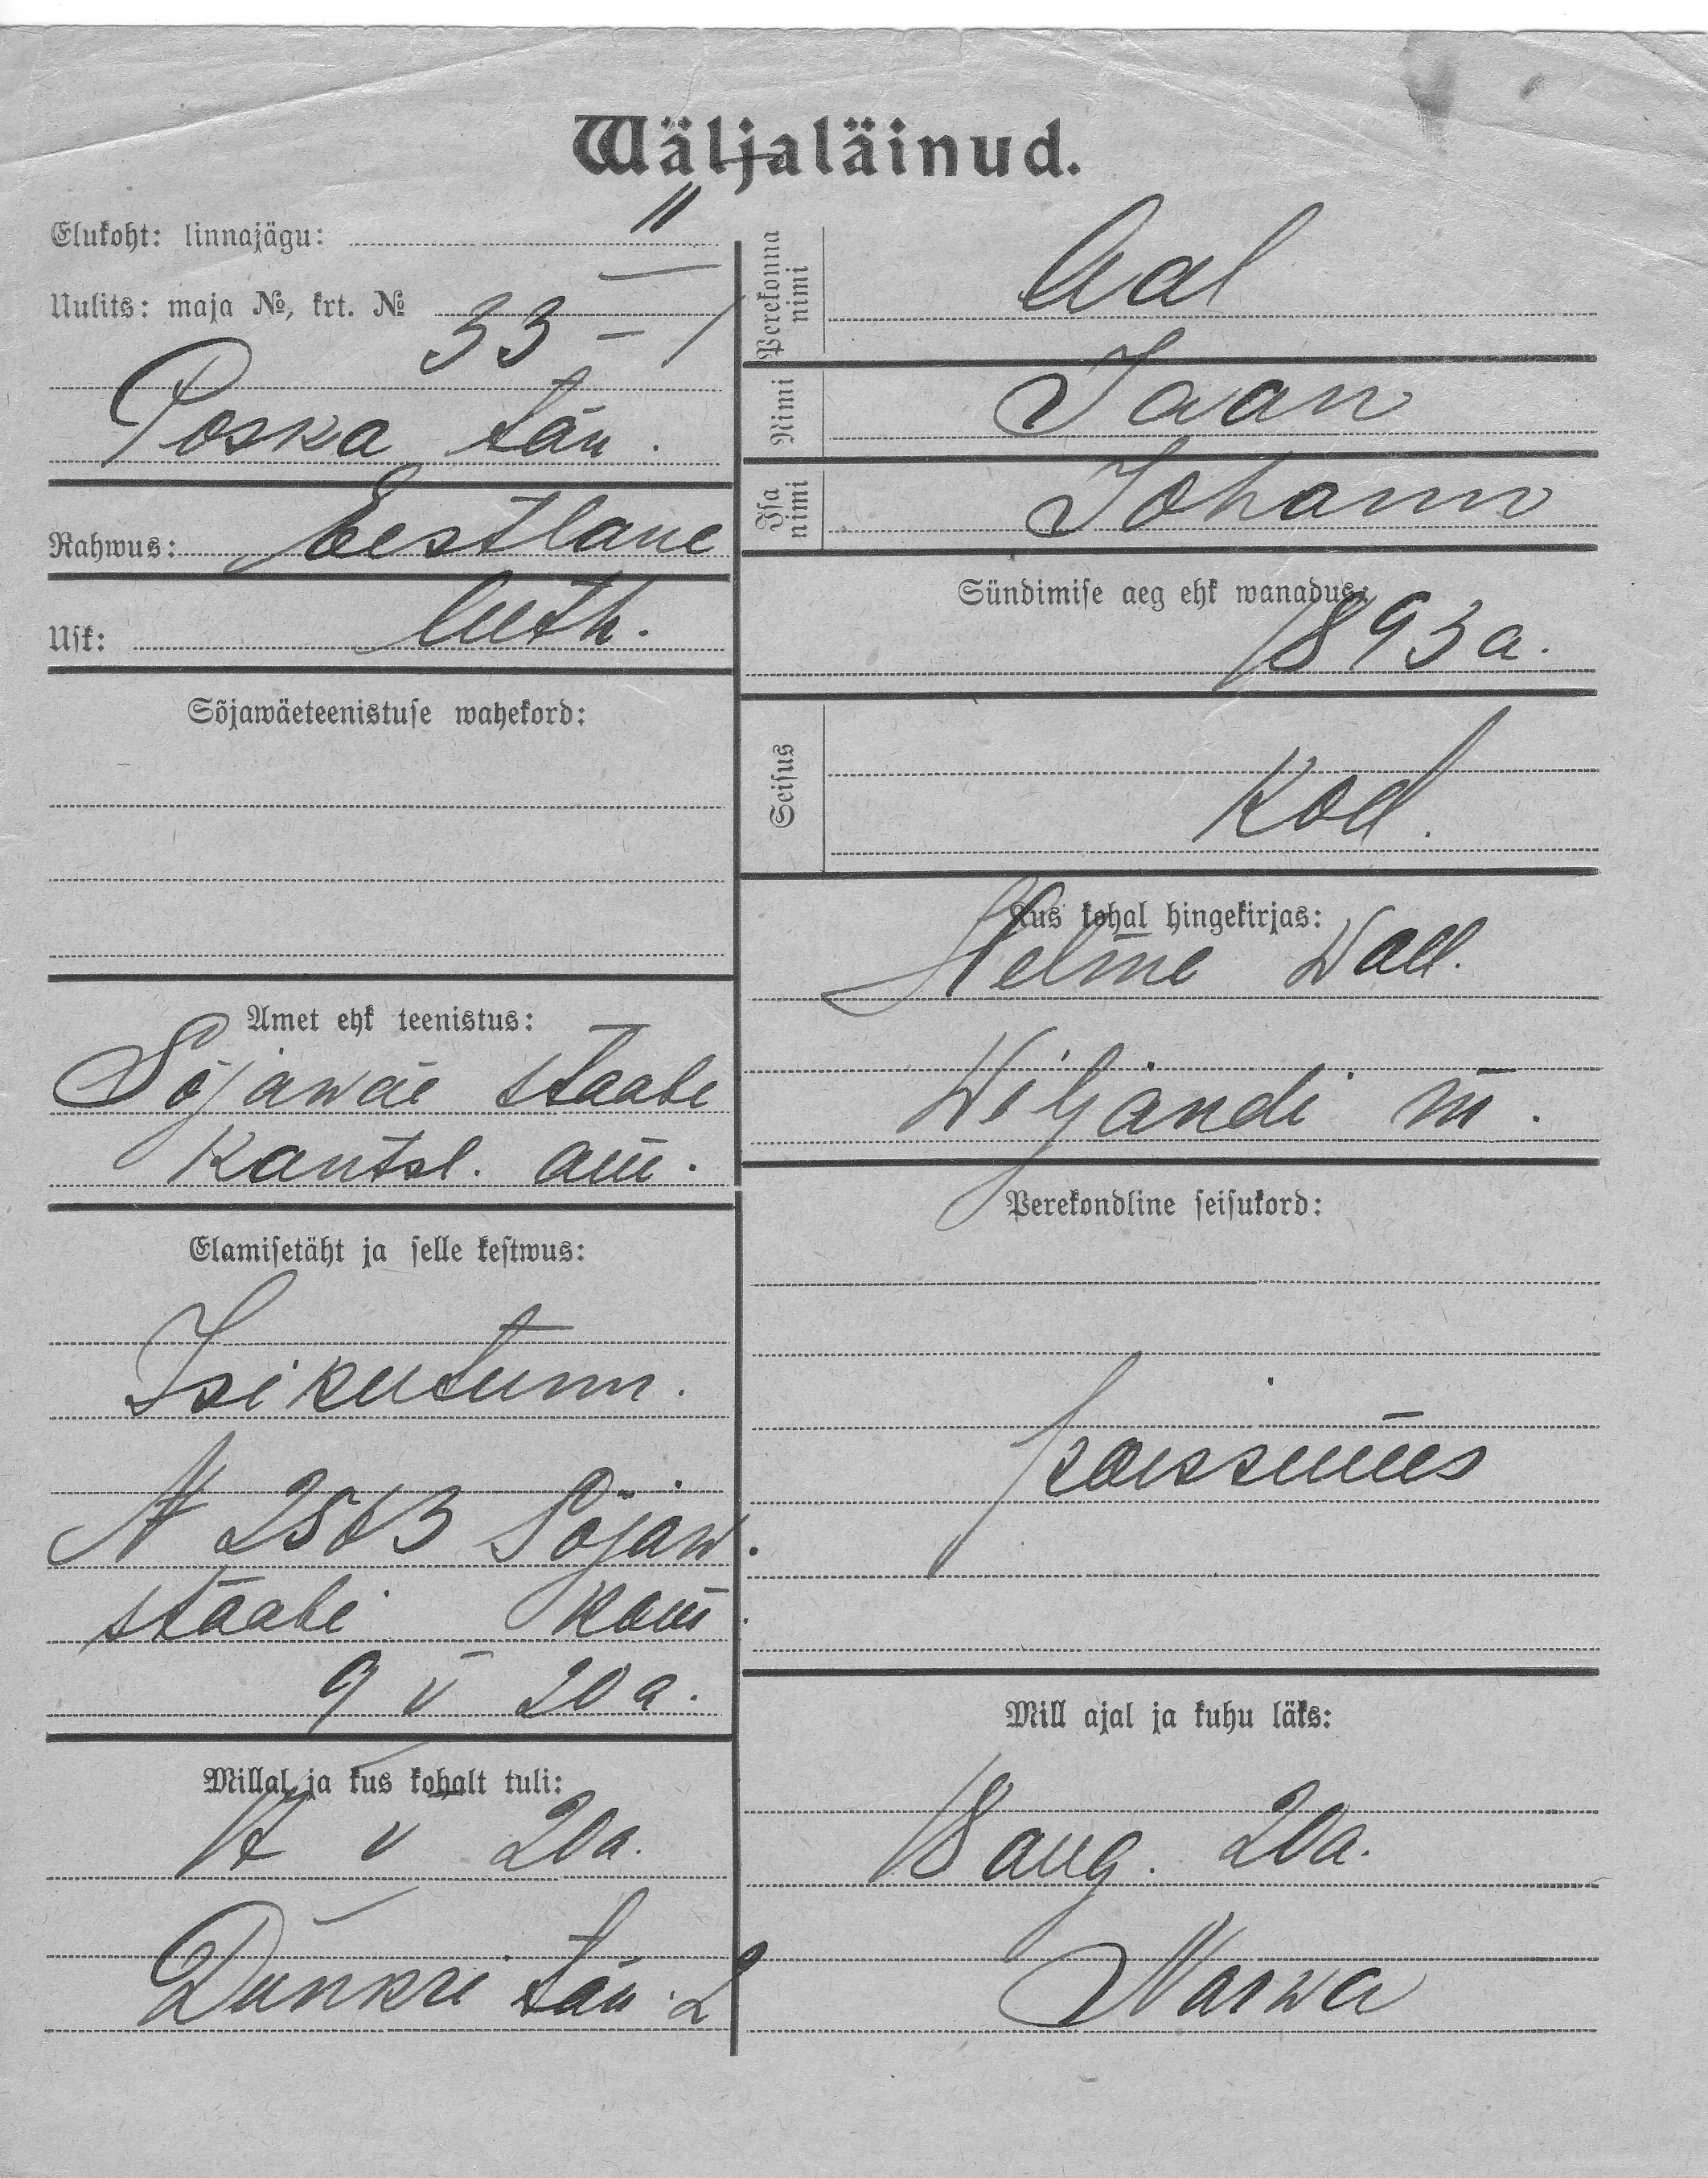 Wäljaläinud.
Elukoht: linnajägu: II
Uulits: maja №, krt. № 33 – 1
Poska tän.
Rahwus: Eestlane
Usk: luth.
Sõjawäeteenistuse wahekord:
Amet ehk teenistus:
Sõjawäe staabe
Kantsl. am.
Elamisetäht ja selle kestwus:
Isikutunn.
N 2563 Sõjaw.
staabi kom.
9 V 20 a.
Millal ja kus kohalt tuli:
V 20a.
Dunkri tän. 2
Perekonna nimi Aal
Nimi Jaan
Isa nimi Johann
Sündimise aeg ehk wanadus:
1893 a.
Seisus
Kod.
Kus kohal hingekirjas:
Helme wall.
Wiljandi m.
Perekondline seisukord:
poissmees
Mill ajal ja kuhu läks:
18 aug. 20a.
Narwa